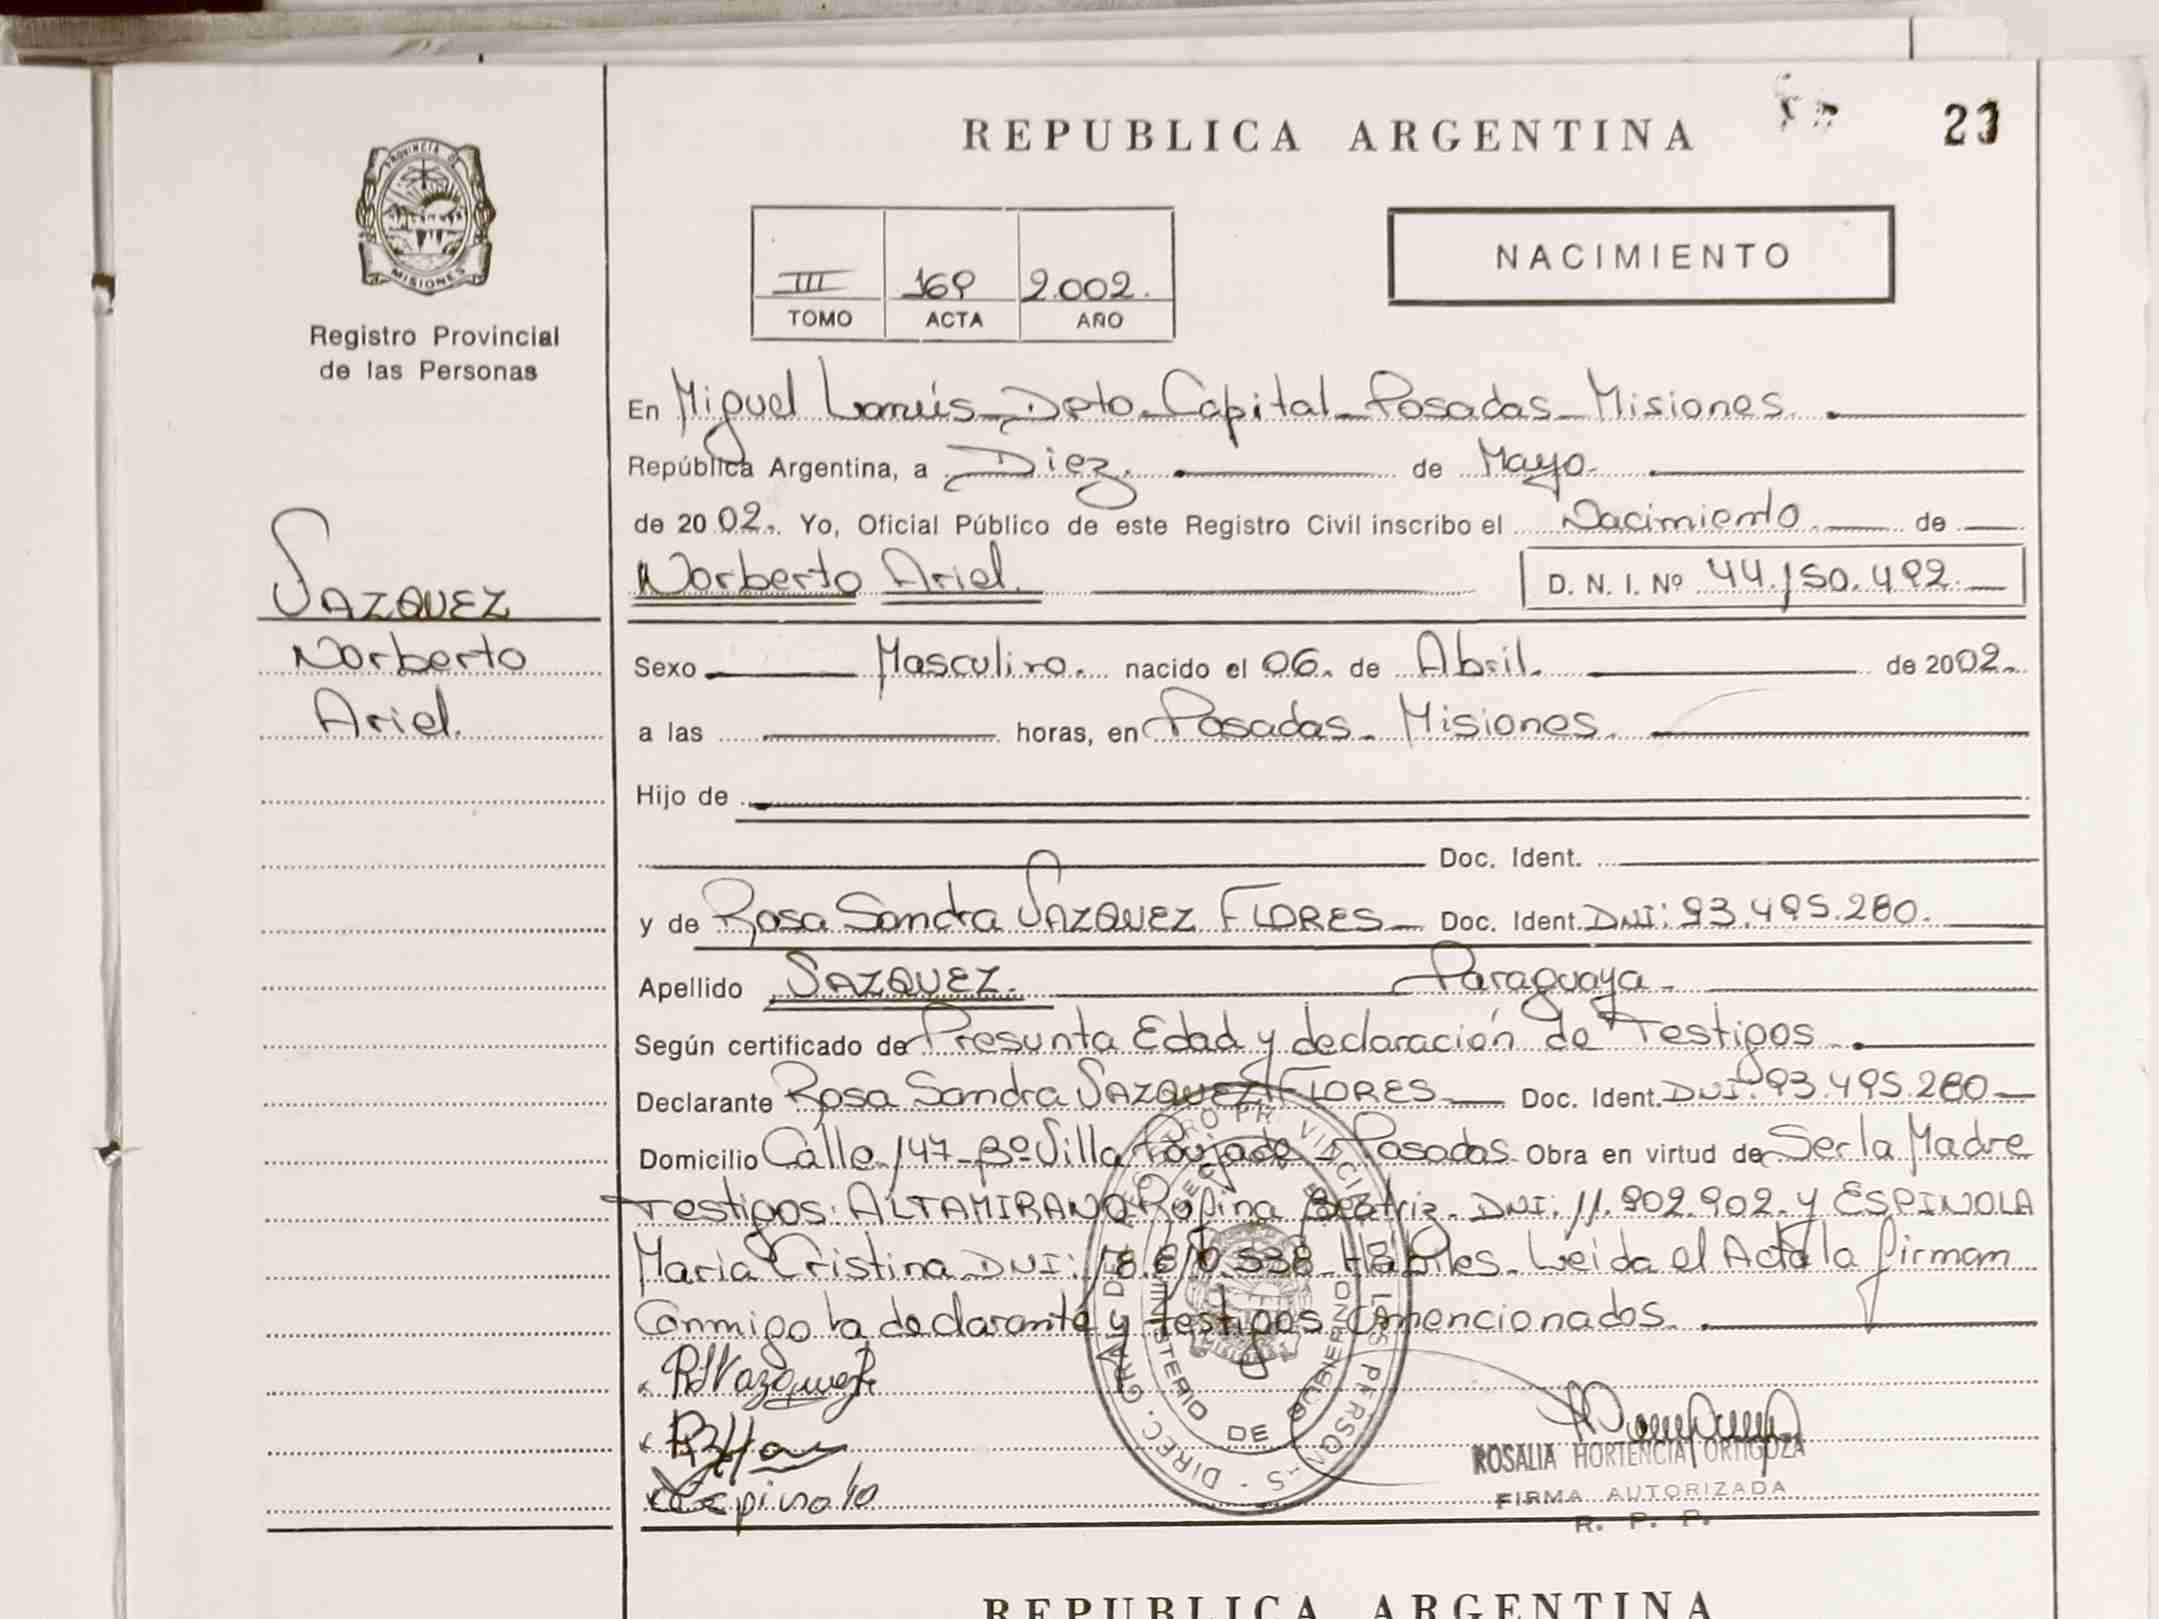 REPUBLICA ARGENTINA
23
PROVINCIA DE
MISIONES
Registro Provincial
de las Personas
III 169 2.002.
TOMO ACTA AÑO
NACIMIENTO
En Miguel Lanús - Dpto. Capital - Posadas - Misiones.
República Argentina, a Diez. de Mayo.
de 2002. Yo, Oficial Público de este Registro Civil inscribo el Nacimiento de
VAZQUEZ
Norberto
Ariel.
Norberto Ariel. D. N. I. Nº 44.150.492.
Sexo Masculino. nacido el 06. de Abril. de 2002.
a las horas, en Posadas - Misiones.
Hijo de
Doc. Ident.
y de Rosa Sandra VAZQUEZ FLORES - Doc. Ident. DNI: 93.495.280.
Apellido VAZQUEZ. Paraguaya -
Según certificado de Presunta Edad y declaración de Testigos.
Declarante Rosa Sandra VAZQUEZ FLORES - Doc. Ident. DNI: 93.495.280 -
Domicilio Calle 147 - Bº Villa Poujade - Posadas - Obra en virtud de Ser la Madre
Testigos: ALTAMIRANO Beatriz - DNI: 11.902.902. y ESPINOLA
María Cristina DNI: Hábiles - Leida el Acta la firman
Conmigo la declarante y testigos mencionados.
RSVazquez
Espinola
ROSALIA HORTENCIA ORTIGOZA
FIRMA AUTORIZADA
R. P. P.
DIREC. GRAL. DEL REGISTRO PROVINCIAL DE LAS PERSONAS
MINISTERIO DE GOBIERNO
REPUBLICA ARGENTINA